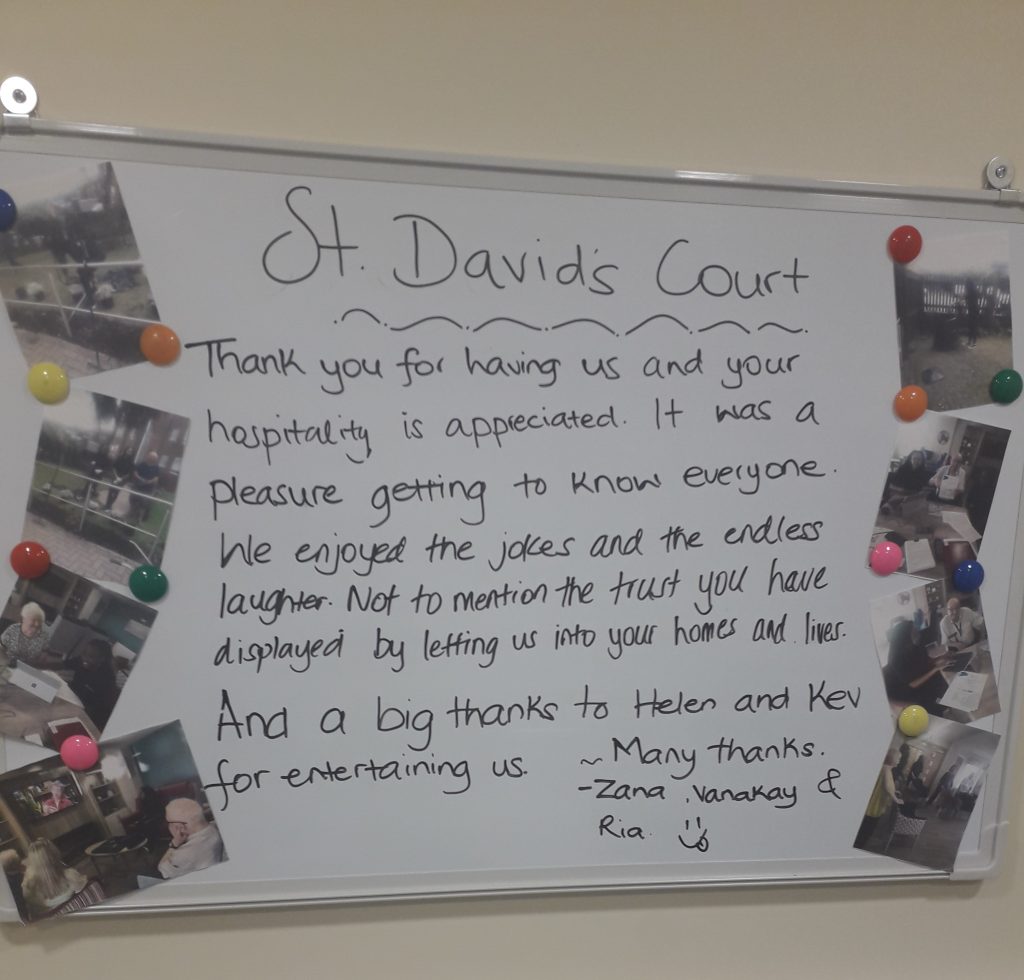 St. David's Court
Thank you for having us and your
hospitality is appreciated. It was a
pleasure getting to know everyone.
We enjoyed the jokes and the endless
laughter. Not to mention the trust you have
displayed by letting us into your homes and lives.
And a big thanks to Helen and Kev
for entertaining us.
~ Many thanks.
- Zana, Vanakay &
Ria.